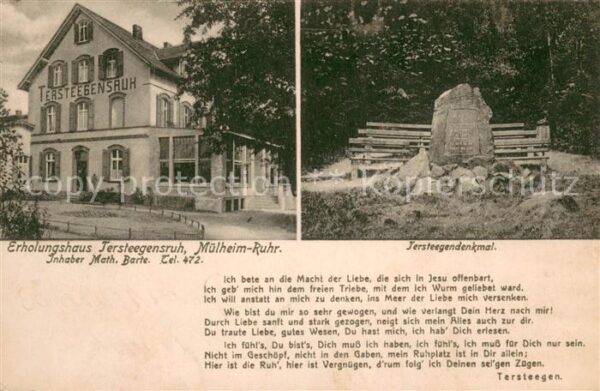 TERSTEEGENSRUH
copy-protection
samlerplatz
Erholungshaus Tersteegensruh, Mülheim-Ruhr.
Inhaber Math. Barte. Tel. 472.
Tersteegendenkmal.
Ich bete an die Macht der Liebe, die sich in Jesu offenbart,
Ich geb' mich hin dem freien Triebe, mit dem ich Wurm geliebet ward.
Ich will anstatt an mich zu denken, ins Meer der Liebe mich versenken.
Wie bist du mir so sehr gewogen, und wie verlangt Dein Herz nach mir!
Durch Liebe sanft und stark gezogen, neigt sich mein Alles auch zur dir.
Du traute Liebe, gutes Wesen, Du hast mich, ich hab' Dich erlesen.
Ich fühl's, Du bist's, Dich muß ich haben, ich fühl's, Ich muß für Dich nur sein.
Nicht im Geschöpf, nicht in den Gaben, mein Ruhplatz ist in Dir allein;
Hier ist die Ruh', hier ist Vergnügen, d'rum folg' ich Deinen sel'gen Zügen.
Tersteegen.